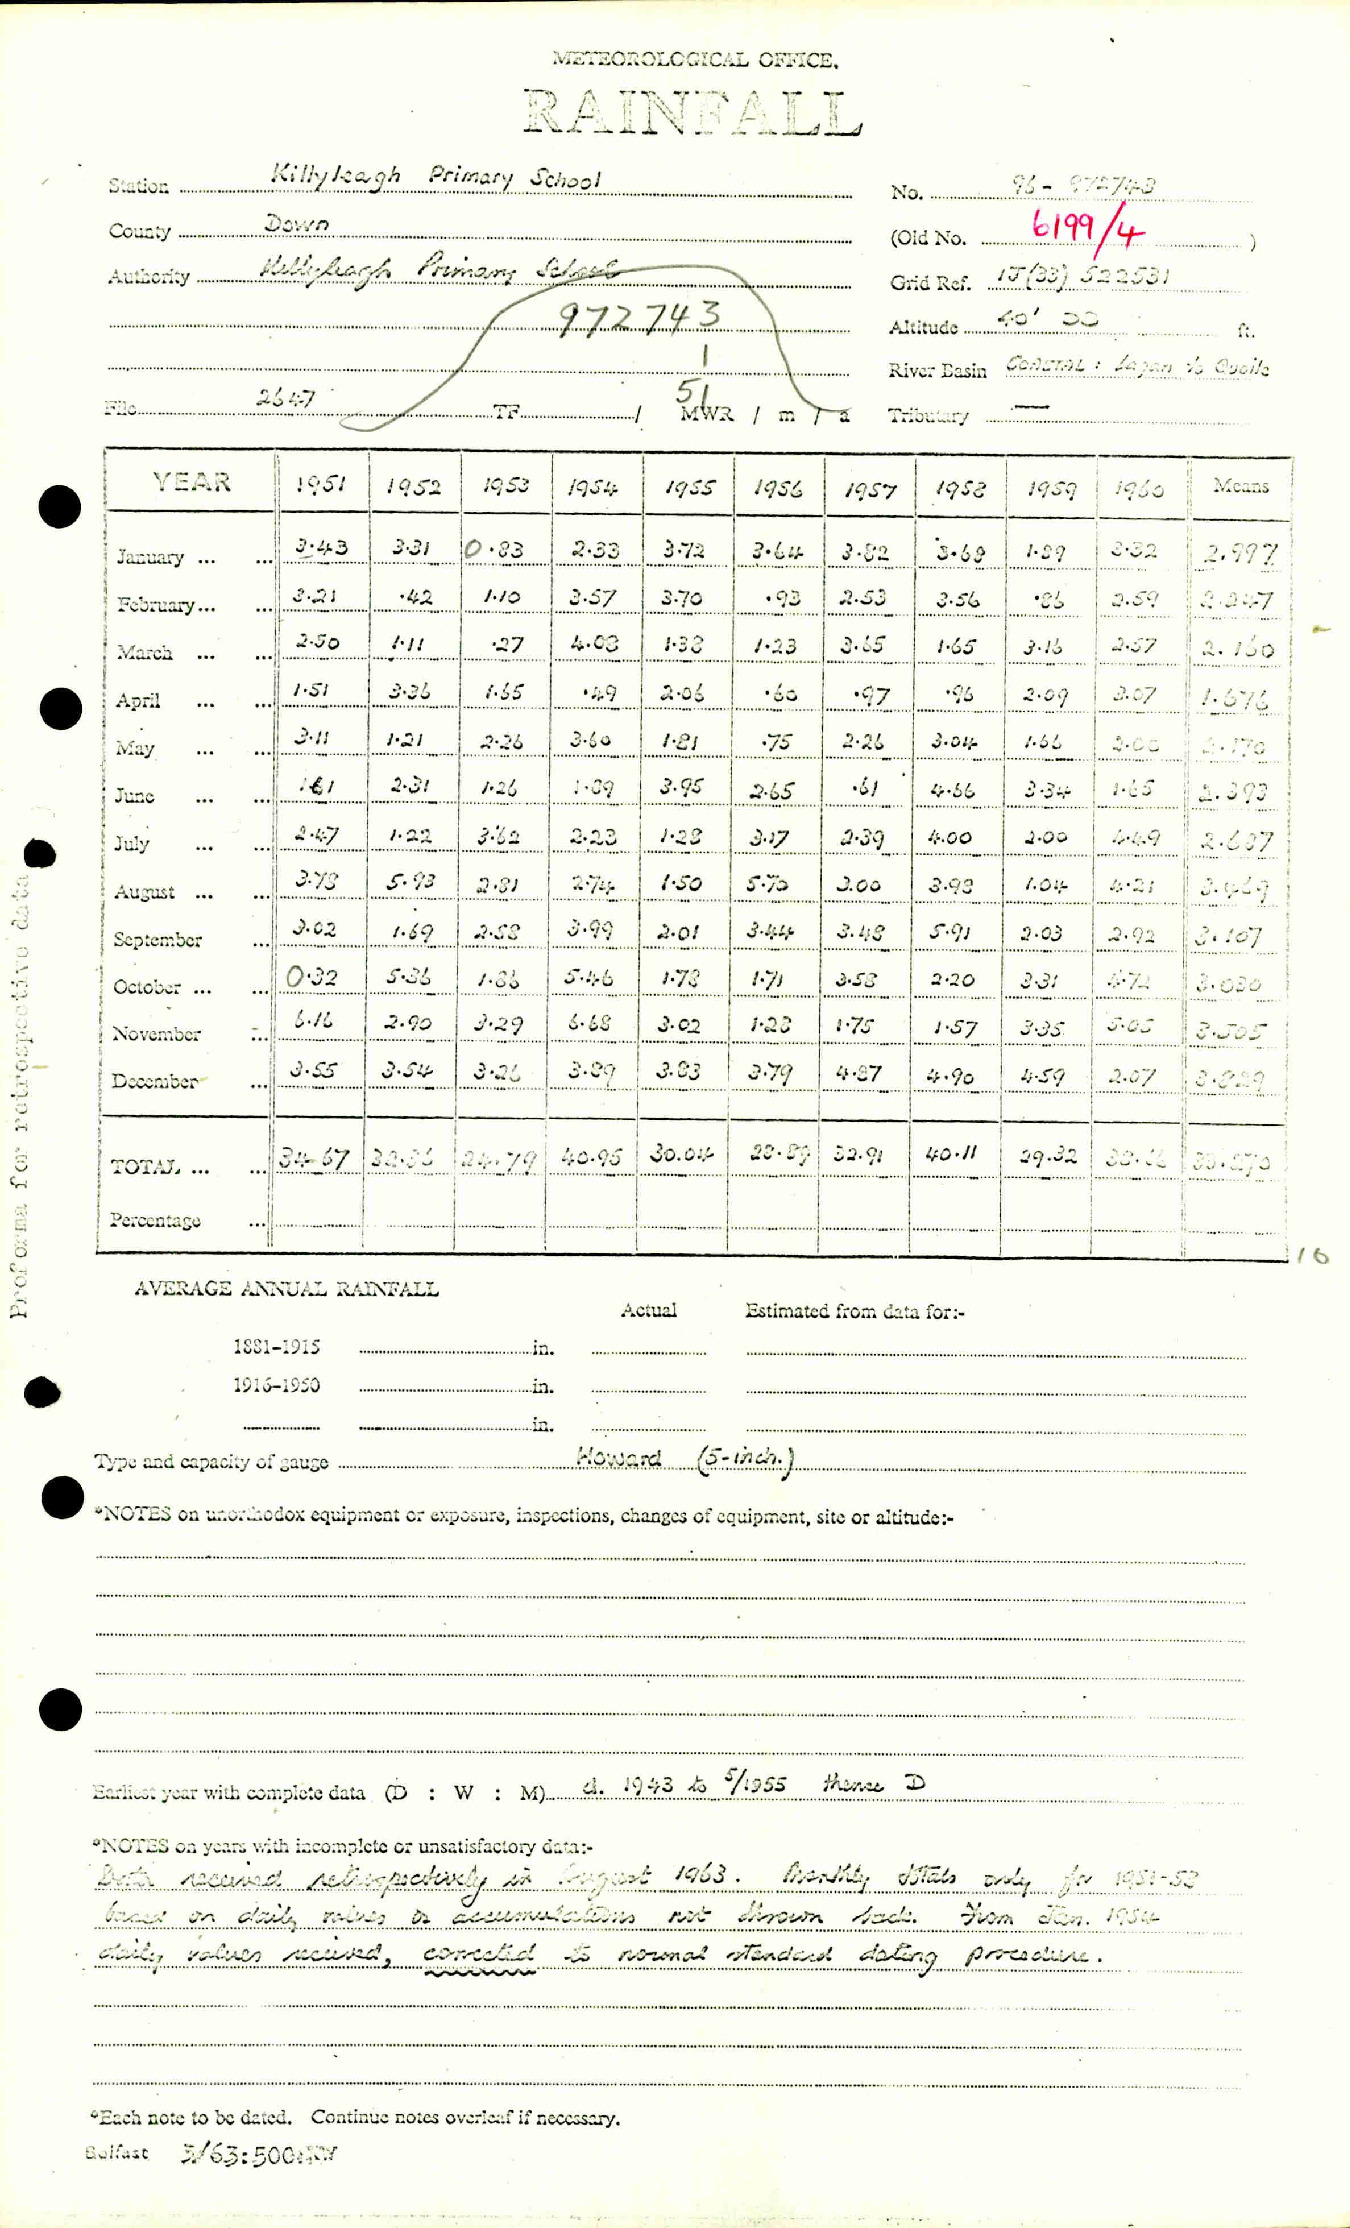 METEOROLOGICAL OFFICE.
RAINFALL
Station Killyleagh Primary School No. 96 - 972743
County Down (Old No. 6199/4 )
Authority Killyleagh Primary School Grid Ref. IJ(33) 522531
972743 Altitude 40' OD ft.
1 River Basin COASTAL : Lagan to Quoile
51
File 2647 TF / MWR / m / a Tributary —
YEAR 1951 1952 1953 1954 1955 1956 1957 1958 1959 1960 Means
January ... ... 3.43 3.31 0.83 2.33 3.72 3.64 3.82 3.68 1.89 3.32 2.997
February ... ... 3.21 .42 1.10 3.57 3.70 .93 2.53 3.56 .86 2.59 2.247
March ... ... 2.50 1.11 .27 4.08 1.38 1.23 3.65 1.65 3.16 2.57 2.160
April ... ... 1.51 3.36 1.65 .49 2.06 .60 .97 .96 2.09 3.07 1.676
May ... ... 3.11 1.21 2.26 3.60 1.81 .75 2.26 3.04 1.66 2.00 2.170
June ... ... 1.61 2.31 1.26 1.89 3.95 2.65 .61 4.66 3.34 1.65 2.393
July ... ... 2.47 1.22 3.62 2.23 1.28 3.17 2.39 4.00 2.00 4.49 2.687
August ... ... 3.78 5.93 2.81 2.74 1.50 5.70 3.00 3.98 1.04 4.21 3.469
September ... 3.02 1.69 2.58 3.99 2.01 3.44 3.48 5.91 2.03 2.92 3.107
October ... ... 0.32 5.36 1.86 5.46 1.78 1.71 3.58 2.20 3.31 4.72 3.030
November ... 6.16 2.90 3.29 6.68 3.02 1.28 1.75 1.57 3.35 5.05 3.505
December ... 3.55 3.54 3.26 3.89 3.83 3.79 4.87 4.90 4.59 2.07 3.829
TOTAL ... ... 34.67 32.36 24.79 40.95 30.04 28.89 32.91 40.11 29.32 38.66 33.270
Percentage ...
10
Proforma for retrospective data
AVERAGE ANNUAL RAINFALL
Actual Estimated from data for:-
1881-1915 in.
1916-1950 in.
in.
Type and capacity of gauge Howard (5-inch.)
*NOTES on unorthodox equipment or exposure, inspections, changes of equipment, site or altitude:-
Earliest year with complete data (D : W : M) d. 1943 to 5/1955 thence D
*NOTES on years with incomplete or unsatisfactory data:-
Data received retrospectively in August 1963. Monthly totals only for 1951-53
based on daily values or accumulations not thrown back. From Jan. 1954
daily values received, corrected to normal standard dating procedure.
*Each note to be dated. Continue notes overleaf if necessary.
Belfast 3/63:500:KW